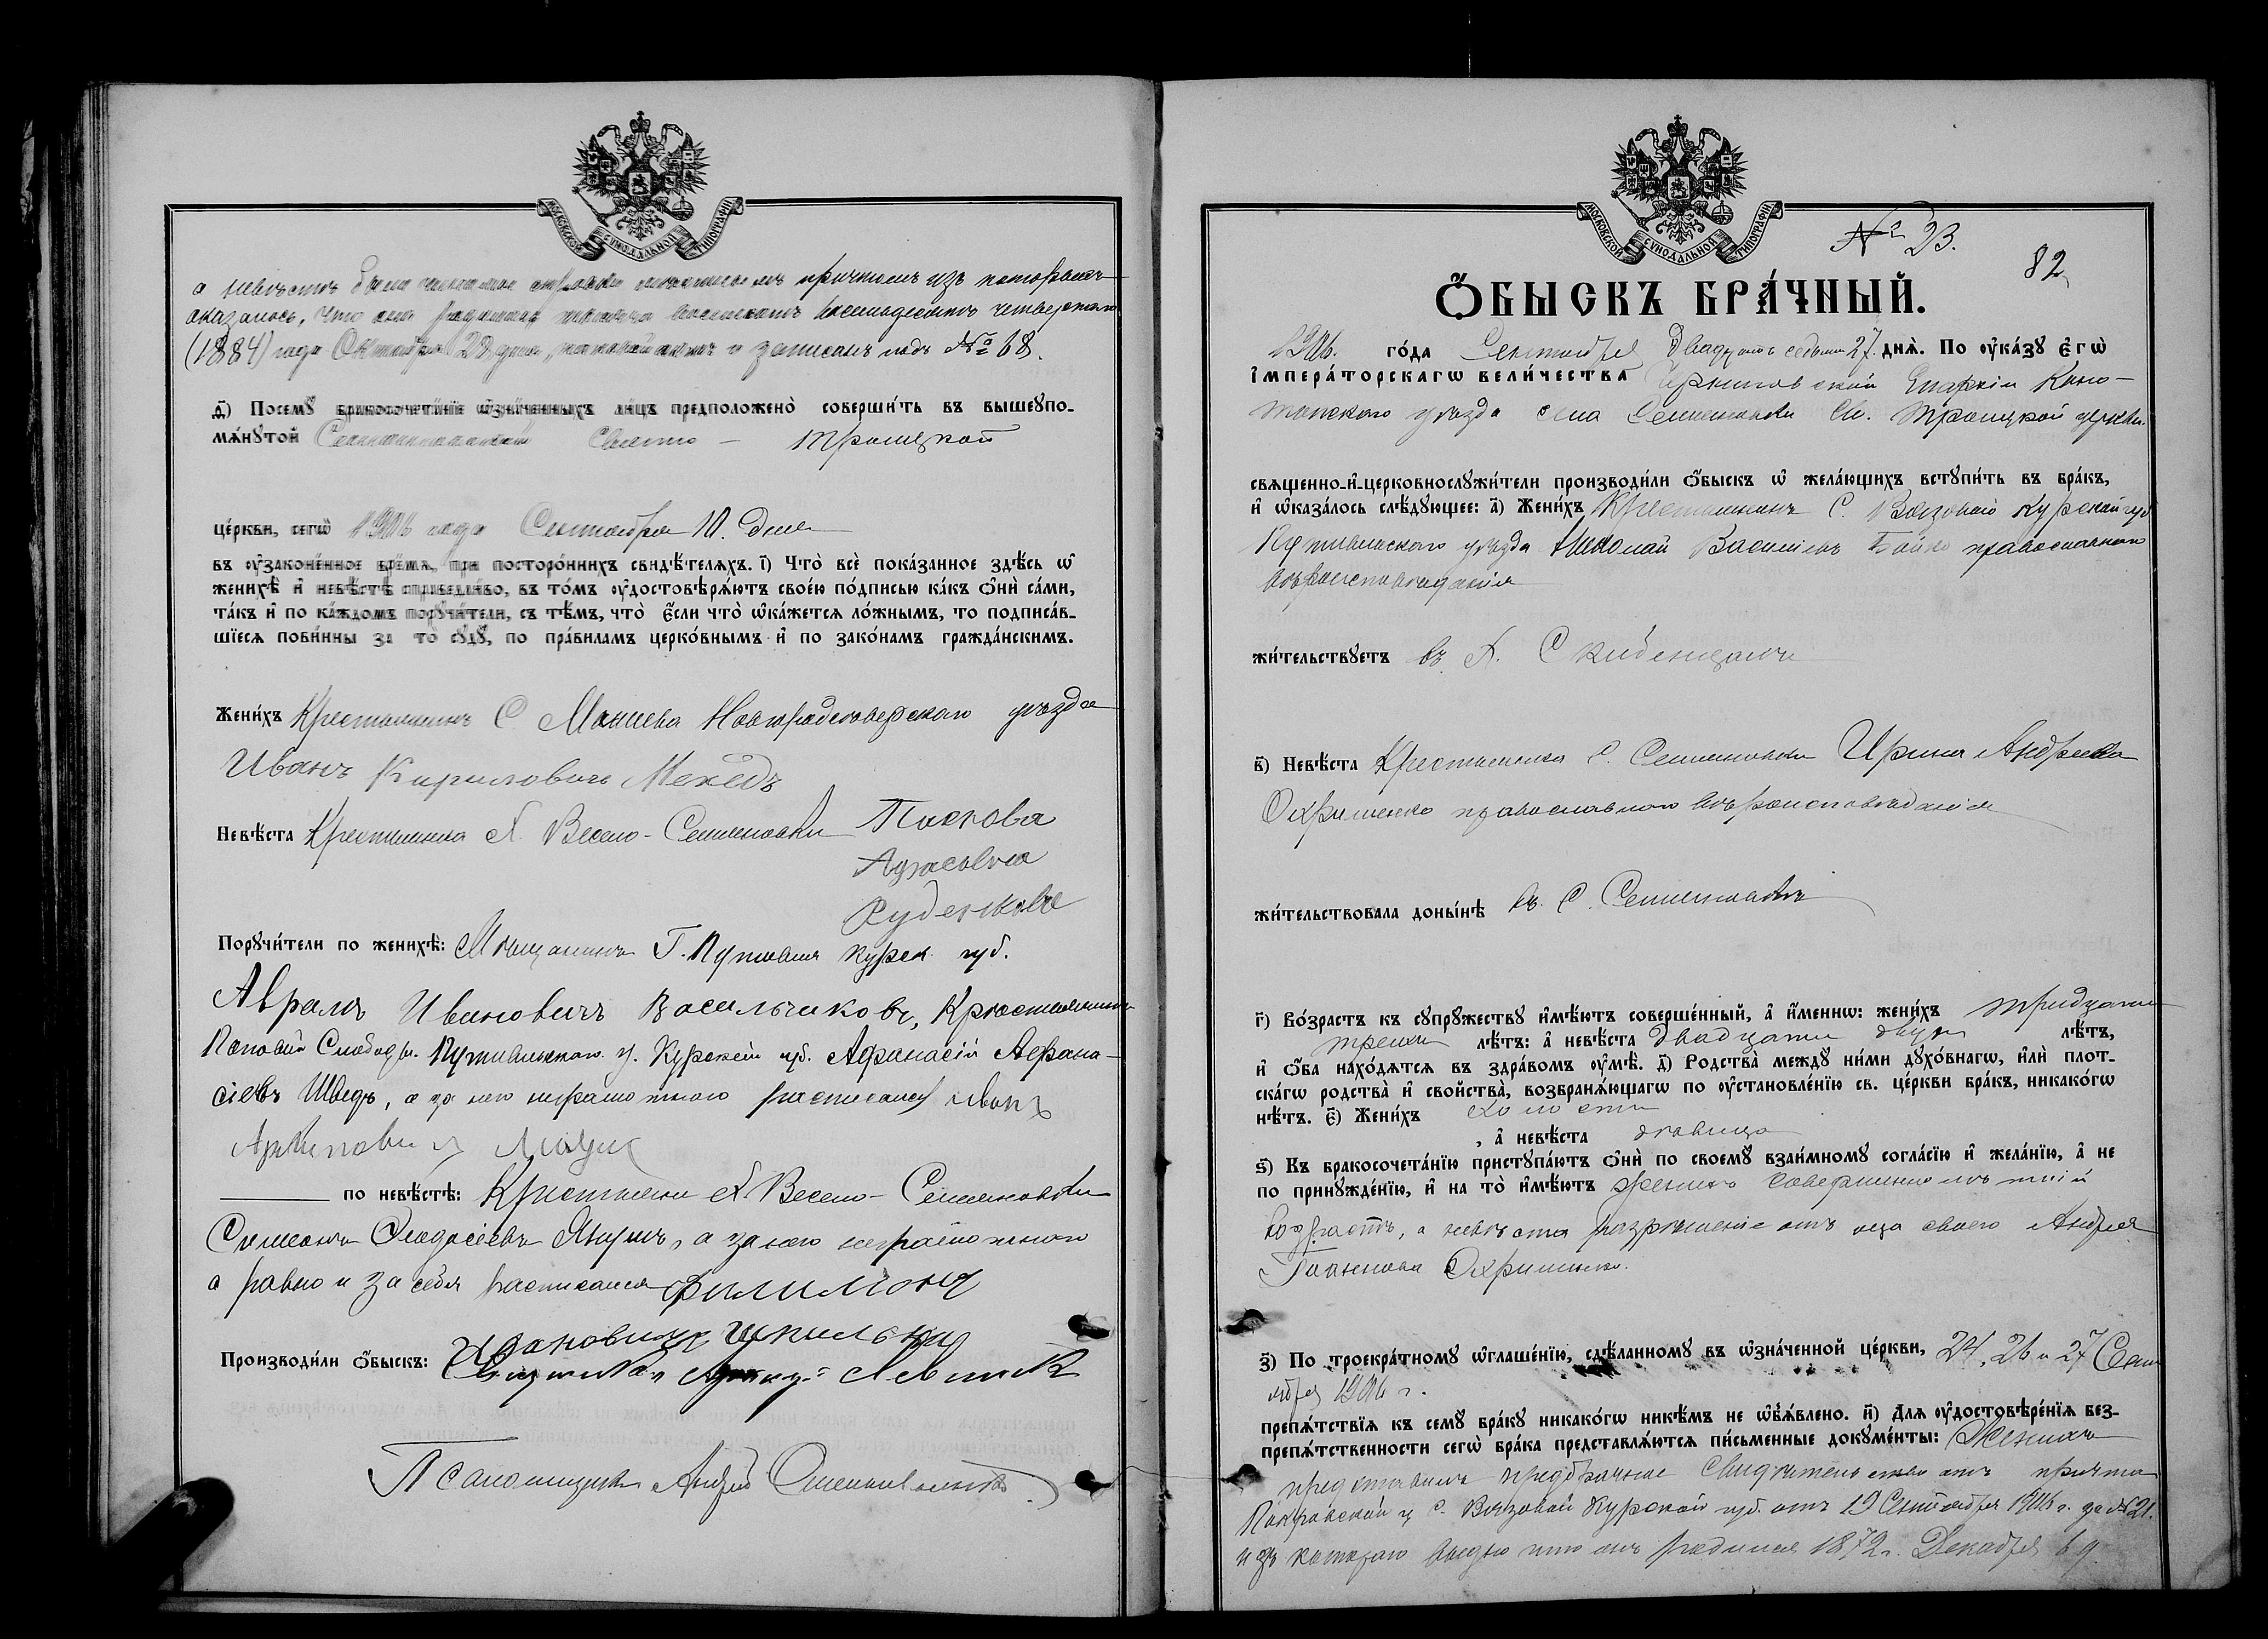 МОСКОВСКОЙ СѴНОДАЛЬНОЙ ТИПОГРАФІИ
а невѣста причтомъ изъ которыхъ
оказалось, что она четвертаго
(1884) года Октября 28 дня, и записанъ подъ № 68.
д҃) Посемꙋ̀ бракосочета́нїе ѡ҆зна́ченныхъ ли́цъ предположено̀ соверши́ть въ вышеупо-
мѧ́нꙋтой Свято - Троицкой
це́ркви, сегѡ̀ 1906 года Сентября 10. дня
въ ᲂу҆зако́ненное вре́мѧ, при посторо́ннихъ свидѣ́телѧхъ. і҃) Что̀ всѐ пока́занное здѣ́сь ѡ҆
женихѣ̀ и҆ невѣ́стѣ справедли́во, въ то́мъ ᲂу҆достовѣрѧ́ютъ свое́ю по́дписью ка́къ ѻ҆нѝ са́ми,
та́къ и҆ по ка́ждомъ порꙋчи́тели, съ тѣ́мъ, что̀ є҆́сли что̀ ѡ҆ка́жетсѧ ло́жнымъ, то подписа́в-
шїесѧ пови́нны за то̀ сꙋдꙋ̀, по пра́виламъ церко́внымъ и҆ по зако́намъ гражда́нскимъ.
Жени́хъ Крестьянинъ С Новгородсѣверскаго уѣзда
Иванъ Кириловичъ Мехедъ
Невѣ́ста Крестьянка Х. Весело-Семеновки
Руденкова
Порꙋчи́тели по женихѣ̀: Мѣщанинъ Г. Путивля Курск. губ.
Аврамъ Ивановичъ Васильчиковъ, Крестьянинъ
Поповой Слободы. Путивльскаго у. Курской губ. Афанасій Афана-
сіевъ Шведъ, а за него неграмотнаго росписался Иванъ
Архиповичъ
по невѣ́стѣ: Крестьяне Х Весело-Семеновки
Симеонъ Феодосіевъ Янушъ, а за него неграмотнаго
а равно и за себя росписался Филимонъ
Производи́ли ѻ҆́быскъ: Священникъ
Псаломщикъ Андрей
МОСКОВСКОЙ СѴНОДАЛЬНОЙ ТИПОГРАФІИ
№ 23.
82
Ѻ҆́БЫСКЪ БРА́ЧНЫЙ.
1906. го́да Сентября двадцать седьмаго 27. днѧ̀. По ᲂу҆ка́зꙋ є҆гѡ̀
і҆мпера́торскагѡ вели́чества Черниговской Епархіи Коно-
топскаго уѣзда села Семеновки Св. Троицкой церкви.
свѧщенно-и҆-церковнослꙋжи́тели производи́ли ѻ҆́быск ѡ҆ жела́ющихъ встꙋпи́ть въ бра́къ,
и҆ ѡ҆каза́лось слѣ́дꙋющее: а҃) Жени́хъ Крестьянинъ С. Вязоваго Курской губ
Путивльскаго уѣзда Николай Васильевъ Бойко православнаго
вѣроисповѣданія
жи́тельствꙋетъ въ Х.
в҃) Невѣ́ста Крестьянка С. Семеновки Ирина Андреева
Охрименко православнаго вѣроисповѣданія
жи́тельствовала доны́нѣ въ С. Семеновкѣ
г҃) Во́зрастъ къ сꙋпрꙋ́жествꙋ и҆мѣ́ютъ соверше́нный, а҆ и҆́меннѡ: жени́хъ тридцати
трехъ лѣ́тъ: а҆ невѣ́ста двадцати двухъ лѣ́тъ,
и҆ ѻ҆́ба нахо́дѧтсѧ въ здра́вомъ ᲂу҆мѣ̀. д҃) Родства̀ междꙋ ни́ми дꙋхо́внагѡ, и҆лѝ плот-
ска́гѡ родства̀ и҆ свойства̀, возбранѧ́ющагѡ по ᲂу҆становле́нїю св. це́ркви бра́къ, никако́гѡ
нѣ́тъ. є҃) Жени́хъ холостъ
, а҆ невѣ́ста дѣвица
ѕ҃) Къ бракосочета́нїю пристꙋпа́ютъ ѻ҆нѝ по своемꙋ̀ взаи́мномꙋ согла́сїю и҆ жела́нїю, а҆ не
по принꙋжде́нїю, и҆ на то̀ и҆мѣ́ютъ женихъ совершеннолѣтній
возрастъ, а невѣста разрѣшеніе отъ отца своего Андрея
Охрименко.
з҃) По троекра́тномꙋ ѡ҆глаше́нїю, сдѣ́ланномꙋ въ ѡ҆зна́ченной це́ркви, 24, 26 и 27 Сент
ября 1906 г.
препѧ́тствїѧ къ семꙋ̀ бра́кꙋ никако́гѡ никѣ́мъ не ѡ҆б̾ѧ́влено. и҃) Длѧ ᲂу҆достовѣре́нїѧ без-
препѧ́тственности сегѡ̀ бра́ка представлѧ́ютсѧ пи́сьменные докꙋме́нты: Женихъ
представилъ предбрачное свидѣтельство отъ причта
Покровской ц. С. Вязовой Курской губ. отъ 19 Сентября 1906 г. за № 21.
изъ котораго видно что онъ родился 1872 г. Декабря 6 д.